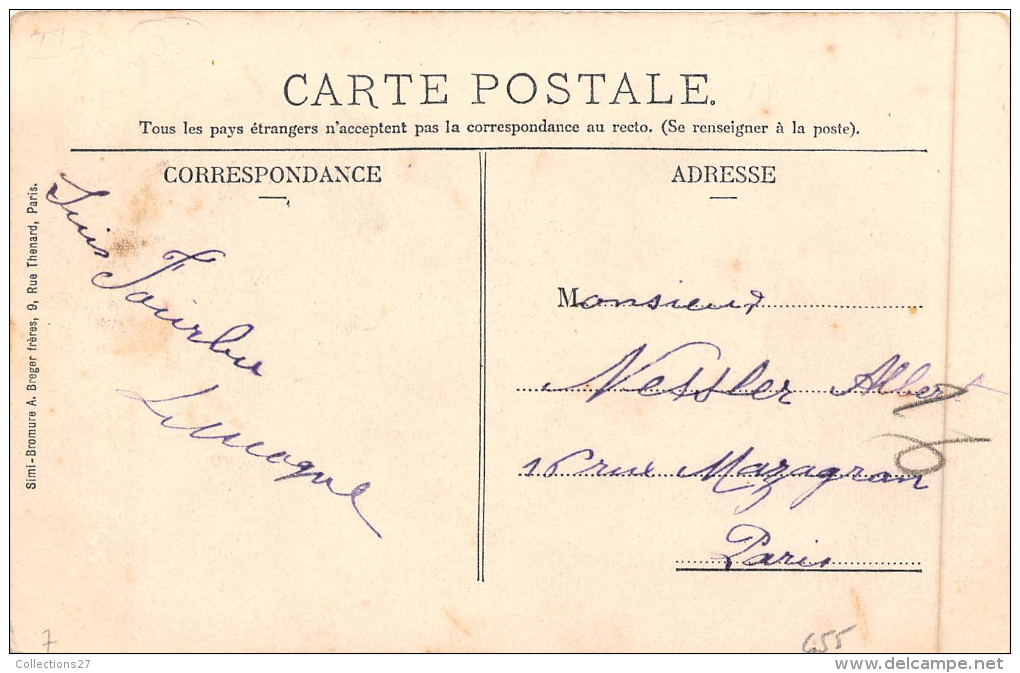 CARTE POSTALE.
Tous les pays étrangers n'acceptent pas la correspondance au recto. (Se renseigner à la poste).
CORRESPONDANCE
ADRESSE
Simi-Bromure A. Breger frères, 9, Rue Thenard, Paris.
Suis
Monsieur
Nessler Albert
16 rue Mazagran
Paris
7
655
Collections27
www.delcampe.net